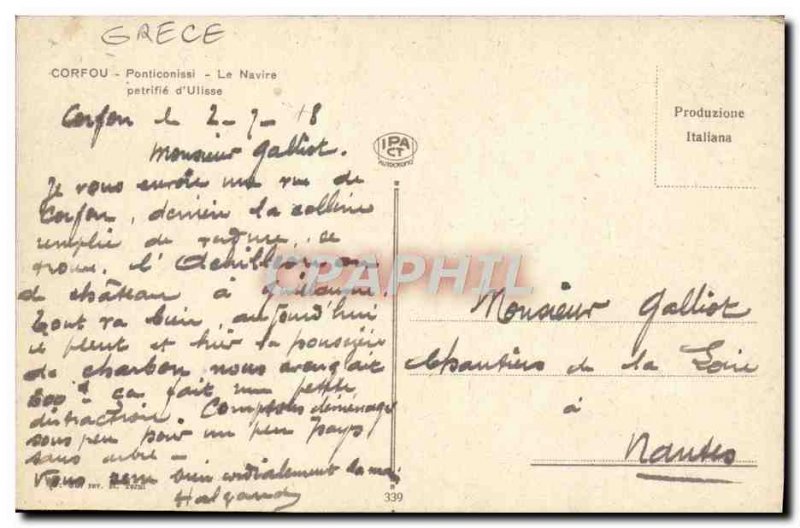 GRECE
CORFOU - Ponticonissi - Le Navire
petrifié d'Ulisse
Corfou le 2-9-18
Monsieur Galliot.
Je vous envoie une vue de
Corfou, derrière la colline
remplie de verdure, se
trouve l'Achilleion ou
le château à Guillaume.
Tout va bien, aujourd'hui
il pleut et hier la poussière
de charbon nous aveuglait
ça fait une petite
distraction. Comptons déménager
sous peu pour un peu pays
sans arbre -
Vous serre bien cordialement la main
Halgand
IPA
CT
AUTOCROMO
Produzione
Italiana
CPAPHIL
Monsieur Galliot
Chantiers de la Loire
à
Nantes
339